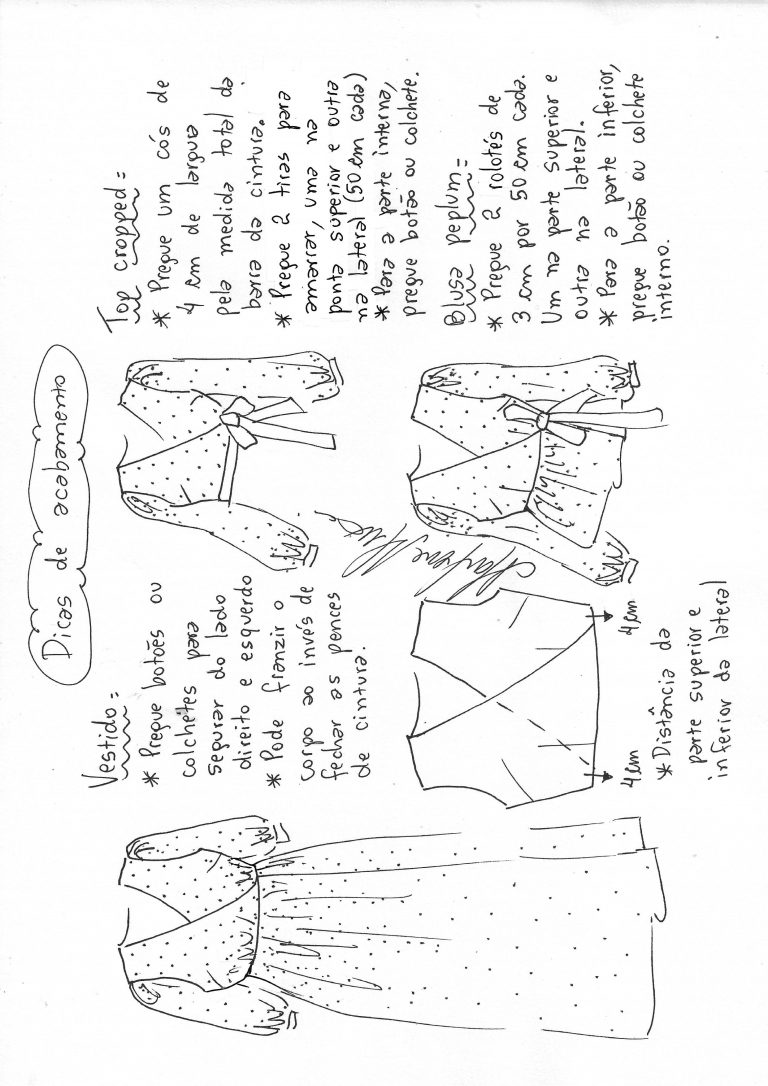 Dicas de acabamento
Vestido:
* Pregue botões ou
colchetes para
segurar do lado
direito e esquerdo
* Pode franzir o
corpo ao invés de
fechar as pences
de cintura.
4cm
4cm
* Distância da
parte superior e
inferior da lateral
Top cropped:
* Pregue um cós de
4 cm de largura
pela medida total da
barra da cintura.
* Pregue 2 tiras para
amarrar, uma na
ponta superior e outra
na lateral (50 cm cada)
* Para a parte interna,
pregue botão ou colchete.
Blusa peplum:
* Pregue 2 rolotês de
3 cm por 50 cm cada.
Um na parte superior e
outra na lateral.
* Para a parte inferior,
pregue botão ou colchete
interno.